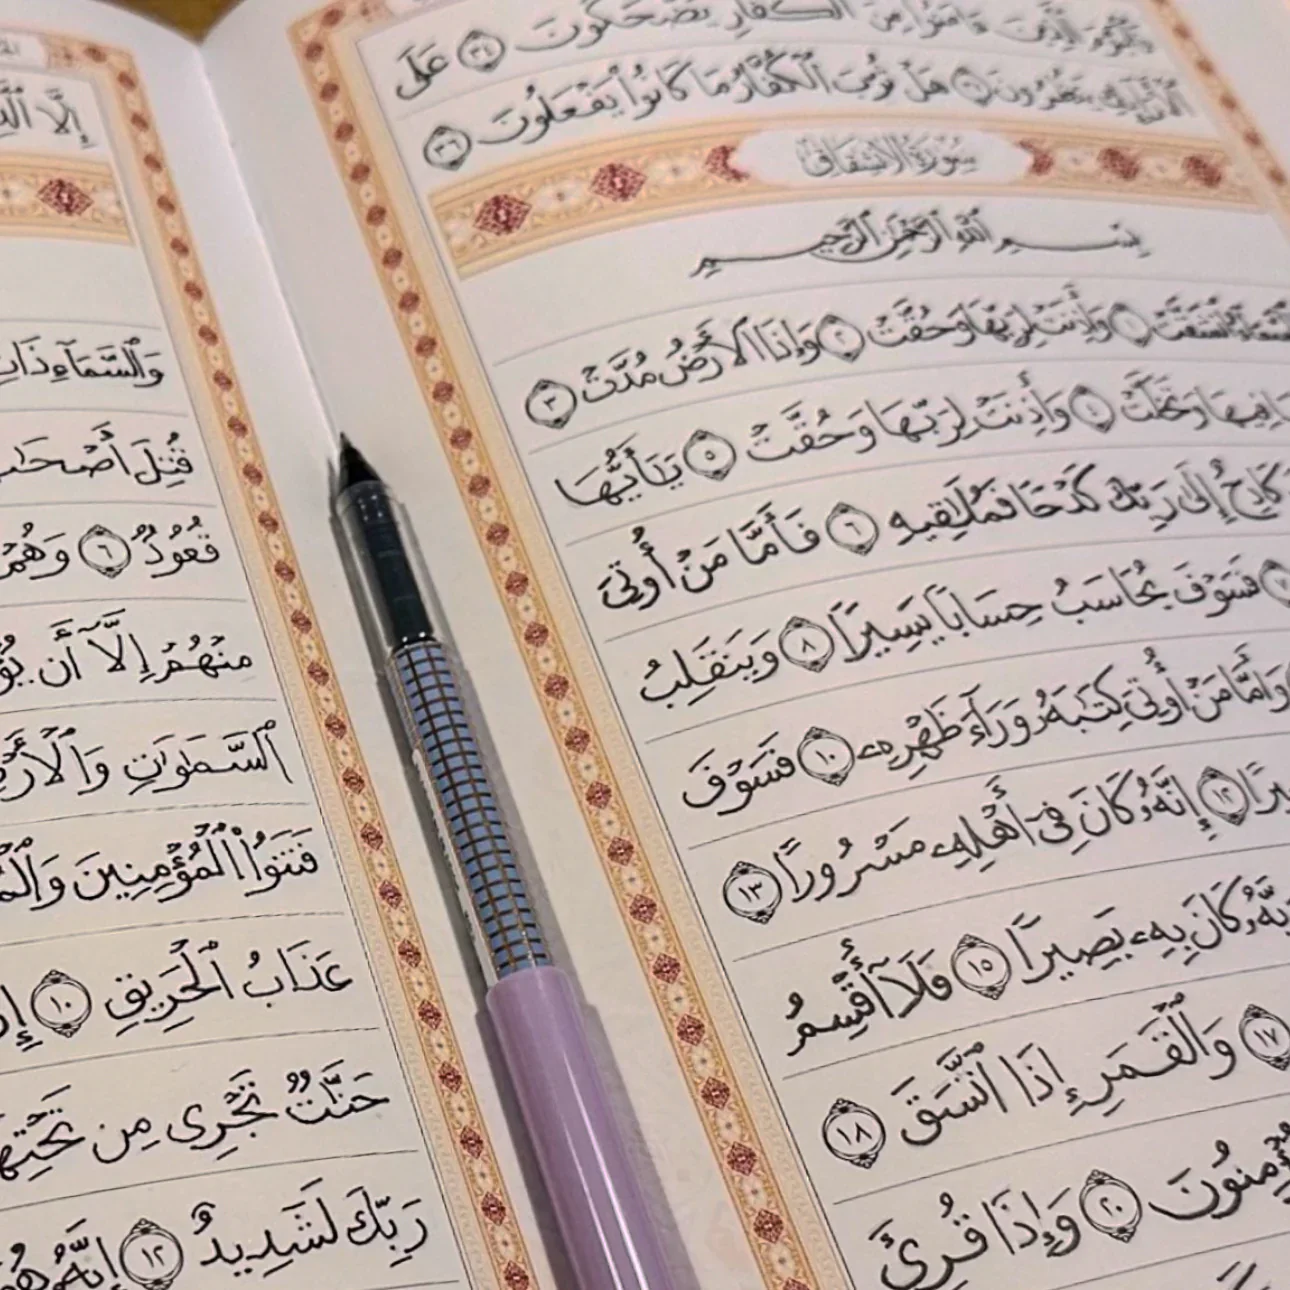 فَٱلْيَوْمَ ٱلَّذِينَ ءَامَنُوا۟ مِنَ ٱلْكُفَّارِ يَضْحَكُونَ ٣٤ عَلَى
ٱلْأَرَآئِكِ يَنظُرُونَ ٣٥ هَلْ ثُوِّبَ ٱلْكُفَّارُ مَا كَانُوا۟ يَفْعَلُونَ ٣٦
سُورَةُ الانشِقَاقِ
بِسْمِ ٱللَّهِ ٱلرَّحْمَٰنِ ٱلرَّحِيمِ
ٱلسَّمَآءُ ٱنشَقَّتْ ١ وَأَذِنَتْ لِرَبِّهَا وَحُقَّتْ ٢ وَإِذَا ٱلْأَرْضُ مُدَّتْ ٣
مَا فِيهَا وَتَخَلَّتْ ٤ وَأَذِنَتْ لِرَبِّهَا وَحُقَّتْ ٥ يَٰٓأَيُّهَا
كَادِحٌ إِلَىٰ رَبِّكَ كَدْحًا فَمُلَٰقِيهِ ٦ فَأَمَّا مَنْ أُوتِىَ
٧ فَسَوْفَ يُحَاسَبُ حِسَابًا يَسِيرًا ٨ وَيَنقَلِبُ
وَأَمَّا مَنْ أُوتِىَ كِتَٰبَهُۥ وَرَآءَ ظَهْرِهِۦ ١٠ فَسَوْفَ
١٢ إِنَّهُۥ كَانَ فِىٓ أَهْلِهِۦ مَسْرُورًا ١٣
رَبَّهُۥ كَانَ بِهِۦ بَصِيرًا ١٥ فَلَآ أُقْسِمُ
١٧ وَٱلْقَمَرِ إِذَا ٱتَّسَقَ ١٨
يُؤْمِنُونَ ٢٠ وَإِذَا قُرِئَ
إِلَّا
وَٱلسَّمَآءِ ذَاتِ
قُتِلَ أَصْحَٰبُ
قُعُودٌ ٦ وَهُمْ
مِنْهُمْ إِلَّآ أَن
ٱلسَّمَٰوَٰتِ وَٱلْأَرْضِ
فَتَنُوا۟ ٱلْمُؤْمِنِينَ
عَذَابُ ٱلْحَرِيقِ ١٠
جَنَّٰتٌ تَجْرِى مِن تَحْتِهَا
رَبِّكَ لَشَدِيدٌ ١٢ إِنَّهُۥ هُوَ